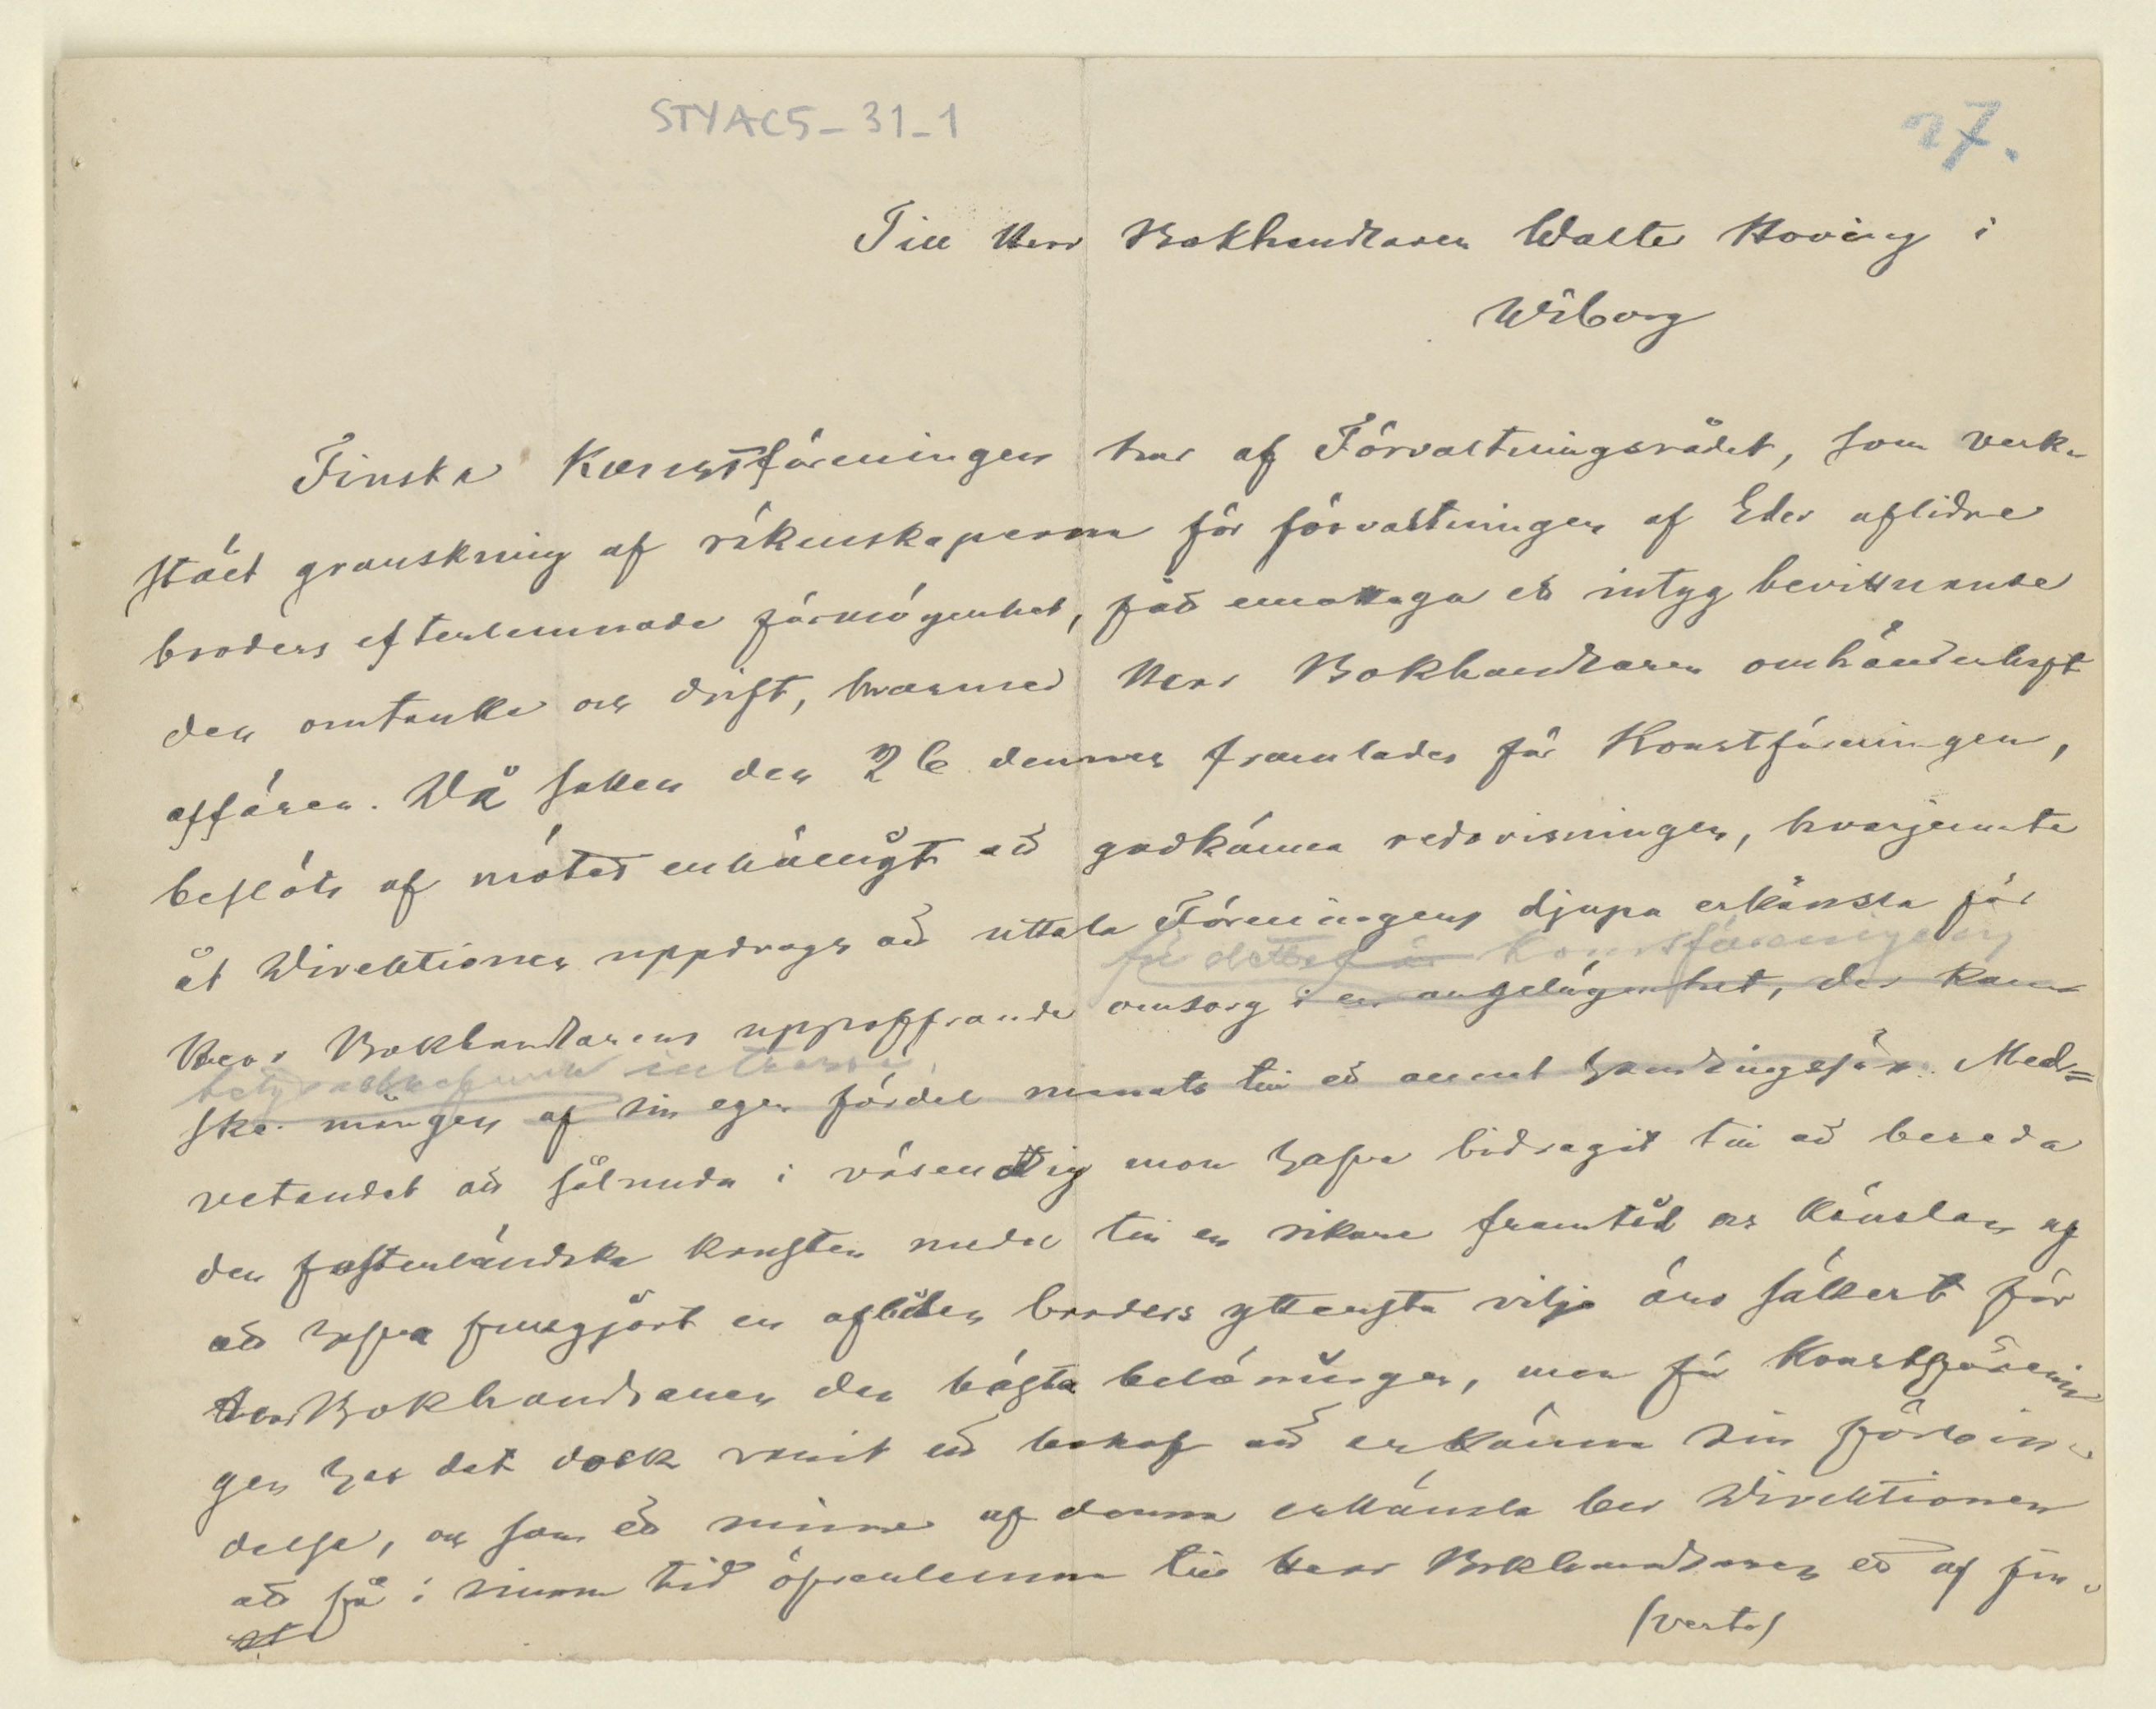 STYAC5-31-1
27.
Till Herr Bokhandlaren Walter Hoving i
Wiborg
Finska Konstföreningen har af Förvaltningsrådet, som verk-
stält granskning af räkenskaperna för förvaltningen af Eder aflidne
broders efterlemnade förmögenhet, fått emottaga ett intyg bevittnande
den omtanke och drift, hvarmed Herr Bokhandlaren omhänderhaft
affären. Då saken den 26 dennes framlades för Konstföreningen,
beslöts af mötet enhälligt att godkänna redovisningen, hvarjemte
åt Direktionen uppdrogs att uttala Föreningens djupa erkänsla för
för detta för Konstföreningens
Herr Bokhandlarens uppoffrande omsorg i en angelägenhet, der kan-
intressen
ske mången af sin egen fördel manats till ett annat handlingssätt. Med=
vetandet att sålunda i väsendtlig mon hafva bidragit till att bereda
den fosterländska konsten medel till en rikare framtid och känslan af
att hafva fullgjort en afliden broders yttersta vilja äro säkert för
Herr Bokhandlaren den bästa belöningen, men för Konstförenin
gen har det dock varit ett behof att erkänna sin förbin-
delse, och som ett minne af denna erkänsla ber Direktionen
att få i sinom tid öfverlemna till Herr Bokhandlaren ett af fin-
(verte)